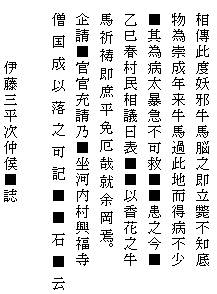 相傳此度妖邪牛馬腦之即立斃不知底
物為崇成年来牛馬過此地而得病不少
■其為病太暴急不可救■■患之今■
乙巳春村民相議曰表■■以香花之牛
馬祈祷即庶平免厄哉就余岡焉。
企請■官官充請乃■坐河内村興福寺
僧国成以落之可記■■石■云
伊藤三平次仲侯■誌